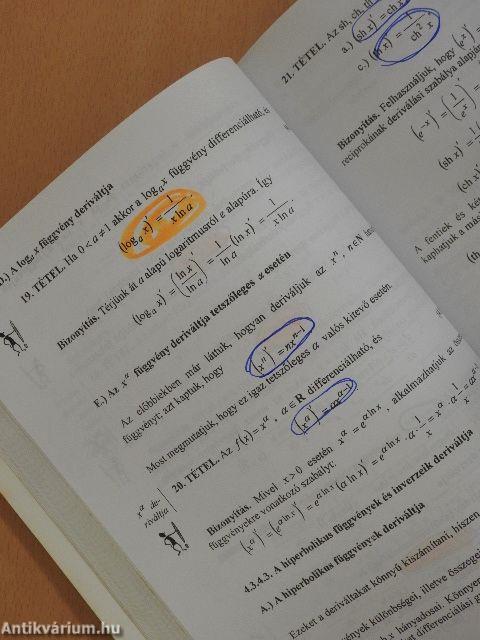 D.) A logₐ x függvény deriváltja
19. TÉTEL. Ha 0 < a ≠ 1 akkor a logₐ x függvény differenciálható, és
(logₐ x)′ = 1/(x ln a)
Bizonyítás. Térjünk át a alapú logaritmusról e alapúra. Így
(logₐ x)′ = (ln x/ln a)′ = 1/ln a (ln x)′ = 1/(x ln a)
E.) Az x^α függvény deriváltja tetszőleges α esetén
Az előbbiekben már láttuk, hogyan deriváljuk az xⁿ, n∈N
függvényt: azt kaptuk, hogy
(xⁿ)′ = nxⁿ⁻¹
Most megmutatjuk, hogy ez igaz tetszőleges α valós kitevő esetén.
20. TÉTEL. Az f(x) = x^α, α∈R differenciálható, és
(x^α)′ = αx^α⁻¹
x^α de-
riváltja
Bizonyítás. Mivel x>0 esetén x^α = e^(α ln x), alkalmazhatjuk az
függvényekre vonatkozó szabályt:
(x^α)′ = (e^(α ln x))′ = e^(α ln x) (α ln x)′ = e^(α ln x) · α · 1/x = x^α · α · 1/x =
4.3.4.3. A hiperbolikus függvények és inverzeik deriváltja
A.) A hiperbolikus függvények deriváltja
Ezeket a deriváltakat könnyű kiszámítani, hiszen
függvények különbségei, illetve összegei
hányadosai. Könnyen
differenciálási
21. TÉTEL. Az sh, ch, th
a.) (sh x)′ = ch x
c.) (th x)′ = 1/ch² x
Bizonyítás. Felhasználjuk, hogy (eˣ)′
reciprokának deriválási szabálya alapján
(e⁻ˣ)′ = (1/eˣ)′
(sh x)′
(ch x)′
(th
A fentiek és
kaptuk a
Antikvárium.hu